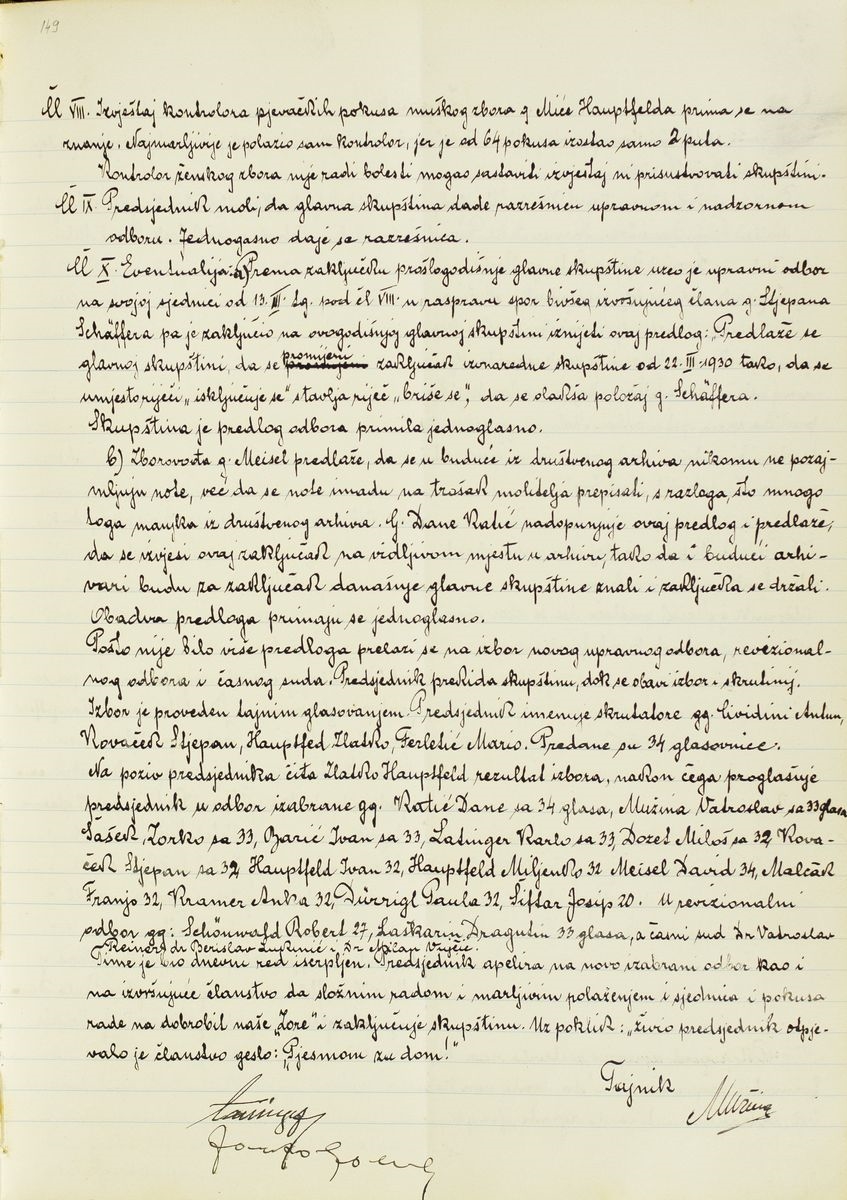 149
Čl VIII. Izvještaj kontrolora pjevačkih pokusa muškog zbora g Miće Hauptfelda prima se na
znanje. Najmarljivije je polazio sam kontrolor, jer je od 64 pokusa izostao samo 2 puta.
Kontrolor ženskog zbora nije radi bolesti mogao sastaviti izvještaj ni prisustvovati skupštini.
Čl IX. Predsjednik moli, da glavna skupština dade razrešnicu upravnom i nadzornom
odboru. Jednogasno daje se razrešnica.
Čl X. Eventualija: a) Prema zaključku prošlogodišnje glavne skupštine uzeo je upravni odbor
na svojoj sjednici od 13. III. tg. pod čl VIII. u raspravu spor bivšeg izvršujućeg člana g. Stjepana
Schäffera pa je zaključio na ovogodišnjoj glavnoj skupštini iznijeti ovaj predlog: „Predlaže se
glavnoj skupštini, da se promijeni zaključak izvanredne skupštine od 22. III. 1930 tako, da se
umjesto riječi „isključuje se" stavlja riječ „briše se", da se olakša položaj g. Schäffera.
Skupština je predlog odbora primila jednoglasno.
b) Zborovođa g. Meisel predlaže, da se u buduće iz društvenog arhiva nikomu ne pozaj-
mljuju note, već da se note imadu na trošak molitelja prepisati, s razloga, što mnogo
toga manjka iz društvenog arhiva. G. Dane Katić nadopunjuje ovaj predlog i predlaže,
da se izvjesi ovaj zaključak na vidljivom mjestu u arhivu, tako da i budući arhi-
vari budu za zaključak današnje glavne skupštine znali i zaključka se držali.
Obadva predloga primaju se jednoglasno.
Pošto nije bilo više predloga prelazi se na izbor novog upravnog odbora, revizional-
nog odbora i časnog suda. Predsjednik prekida skupštinu, dok se obavi izbor i skrutinij.
Izbor je proveden tajnim glasovanjem. Predsjednik imenuje skrutatore gg. Cividini Antun,
Kovaček Stjepan, Hauptfed Zlatko, Ferletić Mario. Predane su 34 glasovnice.
Na poziv predsjednika čita Zlatko Hauptfeld rezultat izbora, nakon čega proglašuje
predsjednik u odbor izabrane gg. Katić Dane sa 34 glasa, Mužina Vatroslav sa 33 glasa
Šašek Zorko sa 33, Barić Ivan sa 33, Latinger Karlo sa 33, Dozet Miloš sa 32 Kova-
ček Stjepan sa 32 Hauptfeld Ivan 32, Hauptfeld Miljenko 32 Meisel David 34, Malčak
Franjo 32, Kramer Anka 32, Dürrigl Paula 32, Šiftar Josip 20. U revizionalni
odbor gg: Schönwald Robert 27, Laskarin Dragutin 33 glasa, a časni sud Dr Vatroslav
Reiner, dr Berislav Lukinić i Dr Milan Vujčić.
Time je bio dnevni red iserpljen. Predsjednik apelira na novo izabrani odbor kao i
na izvršujuće članstvo da složnim radom i marljivim polaženjem i sjednica i pokusa
rade na dobrobit naše „Zore" i zaključuje skupštinu. Uz poklik: „živio predsjednik otpje-
valo je članstvo geslo: „Pjesmom za dom!"
Tajnik
Mužina